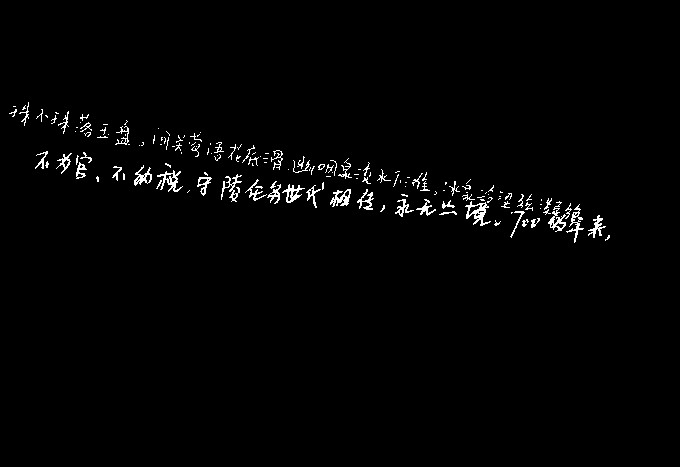 珠小珠落玉盘，间关莺语花底滑，幽咽泉流水下滩，冰泉冷涩弦凝
不为官、不纳税，守陵任务世代相传，永无止境。700年来，